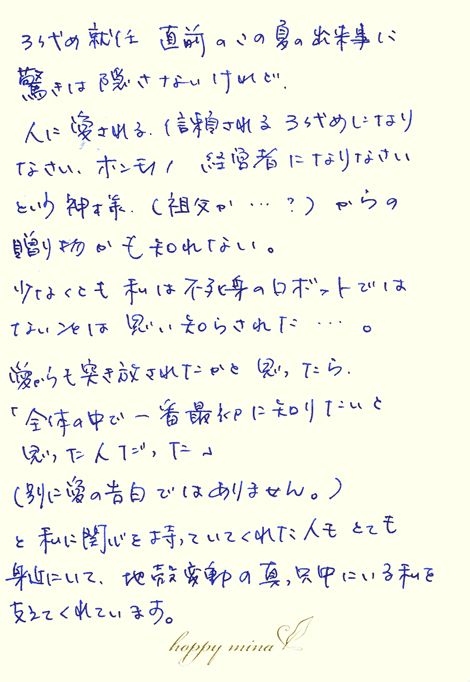 3代め就任 直前のこの夏の出来事に
驚きは隠さないけれど、
人に愛される、信頼される 3代めになり
なさい、ホンモノ 経営者になりなさい
という神様、(祖父か…?)からの
贈り物かも知れない。
少なくとも 私は不死身のロボットでは
ないことは 思い知らされた…。
愛からも突き放されたかと 思ったら、
「全体の中で一番最初に知りたいと
思った人だった」
(別に愛の告白ではありません。)
と 私に関心を持っていてくれた人も とても
身近にいて、地殻変動の真っ只中にいる私を
支えてくれています。
happy mina